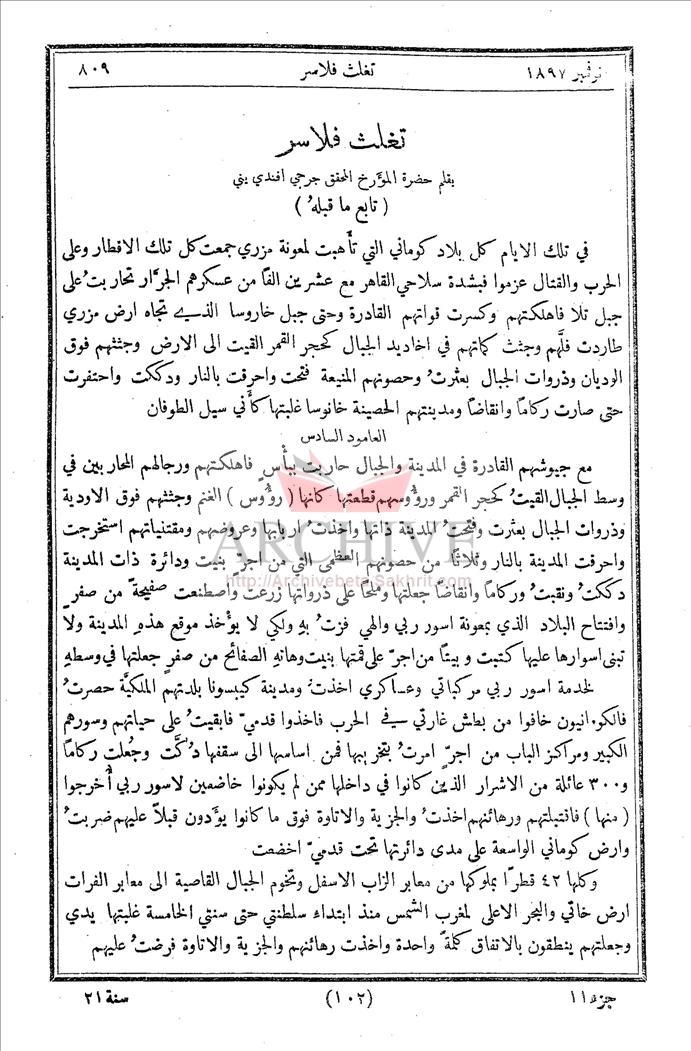 نوفمبر ١٨٩٧ تغلث فلاسر ٨٠٩
تغلث فلاسر
بقلم حضرة المؤرخ المحقق جرجي افندي يني
( تابع ما قبلهُ )
في تلك الايام كل بلاد كوماني التي تأهبت لمعونة مزري جمعت كل تلك الاقطار وعلى
الحرب والقتال عزموا فبشدة سلاحي القاهر مع عشرين الفًا من عسكرهم الجرَّار تحاربتُ على
جبل تلا فاهلكتهم وكسرت قواتهم القادرة وحتى جبل خاروسا الذي تجاه ارض مزري
طاردت فلَّهم وجثث كماتهم في اخاديد الجبال كحجر القمر القيت الى الارض وجثثهم فوق
الوديان وذروات الجبال بعثرتُ وحصونهم المنيعة فتحت واحرقت بالنار ودككت واحتفرت
حتى صارت ركامًا وانقاضًا ومدينتهم الحصينة خانوسا غلبتها كأني سيل الطوفان
العامود السادس
مع جيوشهم القادرة في المدينة والجبال حاربت ببأسٍ فاهلكتهم ورجالهم المحاربين في
وسط الجبال القيتُ كحجر القمر ورؤوسهم قطعتها كانها ( رؤوس ) الغنم وجثثهم فوق الاودية
وذروات الجبال بعثرت وفتحتُ المدينة ذاتها واخذتُ اربابها وعروضهم ومقتنياتهم استخرجت
واحرقت المدينة بالنار وثلاثًا من حصونهم العظمى التي من اجرٍ بنيت ودائرة ذات المدينة
دككتُ ونقبتُ وركامًا وانقاضًا جعلتها وملحًا على ذرواتها زرعت واصطنعت صفيحةً من صفرٍ
وافتتاح البلاد الذي بمعونة اسور ربي والهي فزتُ بهِ ولكي لا يؤخذ موقع هذهِ المدينة ولا
تبنى اسوارها عليها كتبت وبيتًا من اجرٍّ على قمتها بنيت وهاته الصفائح من صفرٍ جعلتها في وسطهِ
لخدمة اسور ربي مركباتي وعساكري اخذتُ ومدينة كيبسونا بلدتهم الملكيَّة حصرتُ
فالكومانيون خافوا من بطش غارتي في الحرب فاخذوا قدميَّ فابقيتُ على حياتهم وسورهم
الكبير ومراكز الباب من اجرٍّ امرتُ بتخريبها فمن اساسها الى سقفها دُكَّت وجُعلت ركامًا
و٣٠٠ عائلة من الاشرار الذين كانوا في داخلها ممن لم يكونوا خاضعين لاسور ربي أُخرجوا
( منها ) فاقتبلتهم ورهائنهم اخذتُ والجزية والاتاوة فوق ما كانوا يؤدون قبلًا عليهم ضربتُ
وارض كوماني الواسعة على مدى دائرتها تحت قدميَّ اخضعت
وكلها ٤٢ قطرًا بملوكها من معابر الزاب الاسفل وتخوم الجبال القاصية الى معابر الفرات
ارض خاتي والبحر الاعلى لمغرب الشمس منذ ابتداء سلطنتي حتى سنتي الخامسة غلبتها يدي
وجعلتهم ينطقون بالاتفاق كلمةً واحدة واخذت رهائنهم والجزية والاتاوة فرضتُ عليهم
جزء ١١ (١٠٢) سنة ٢١
ARCHIVE
http://Archivebeta.Sakhrit.com